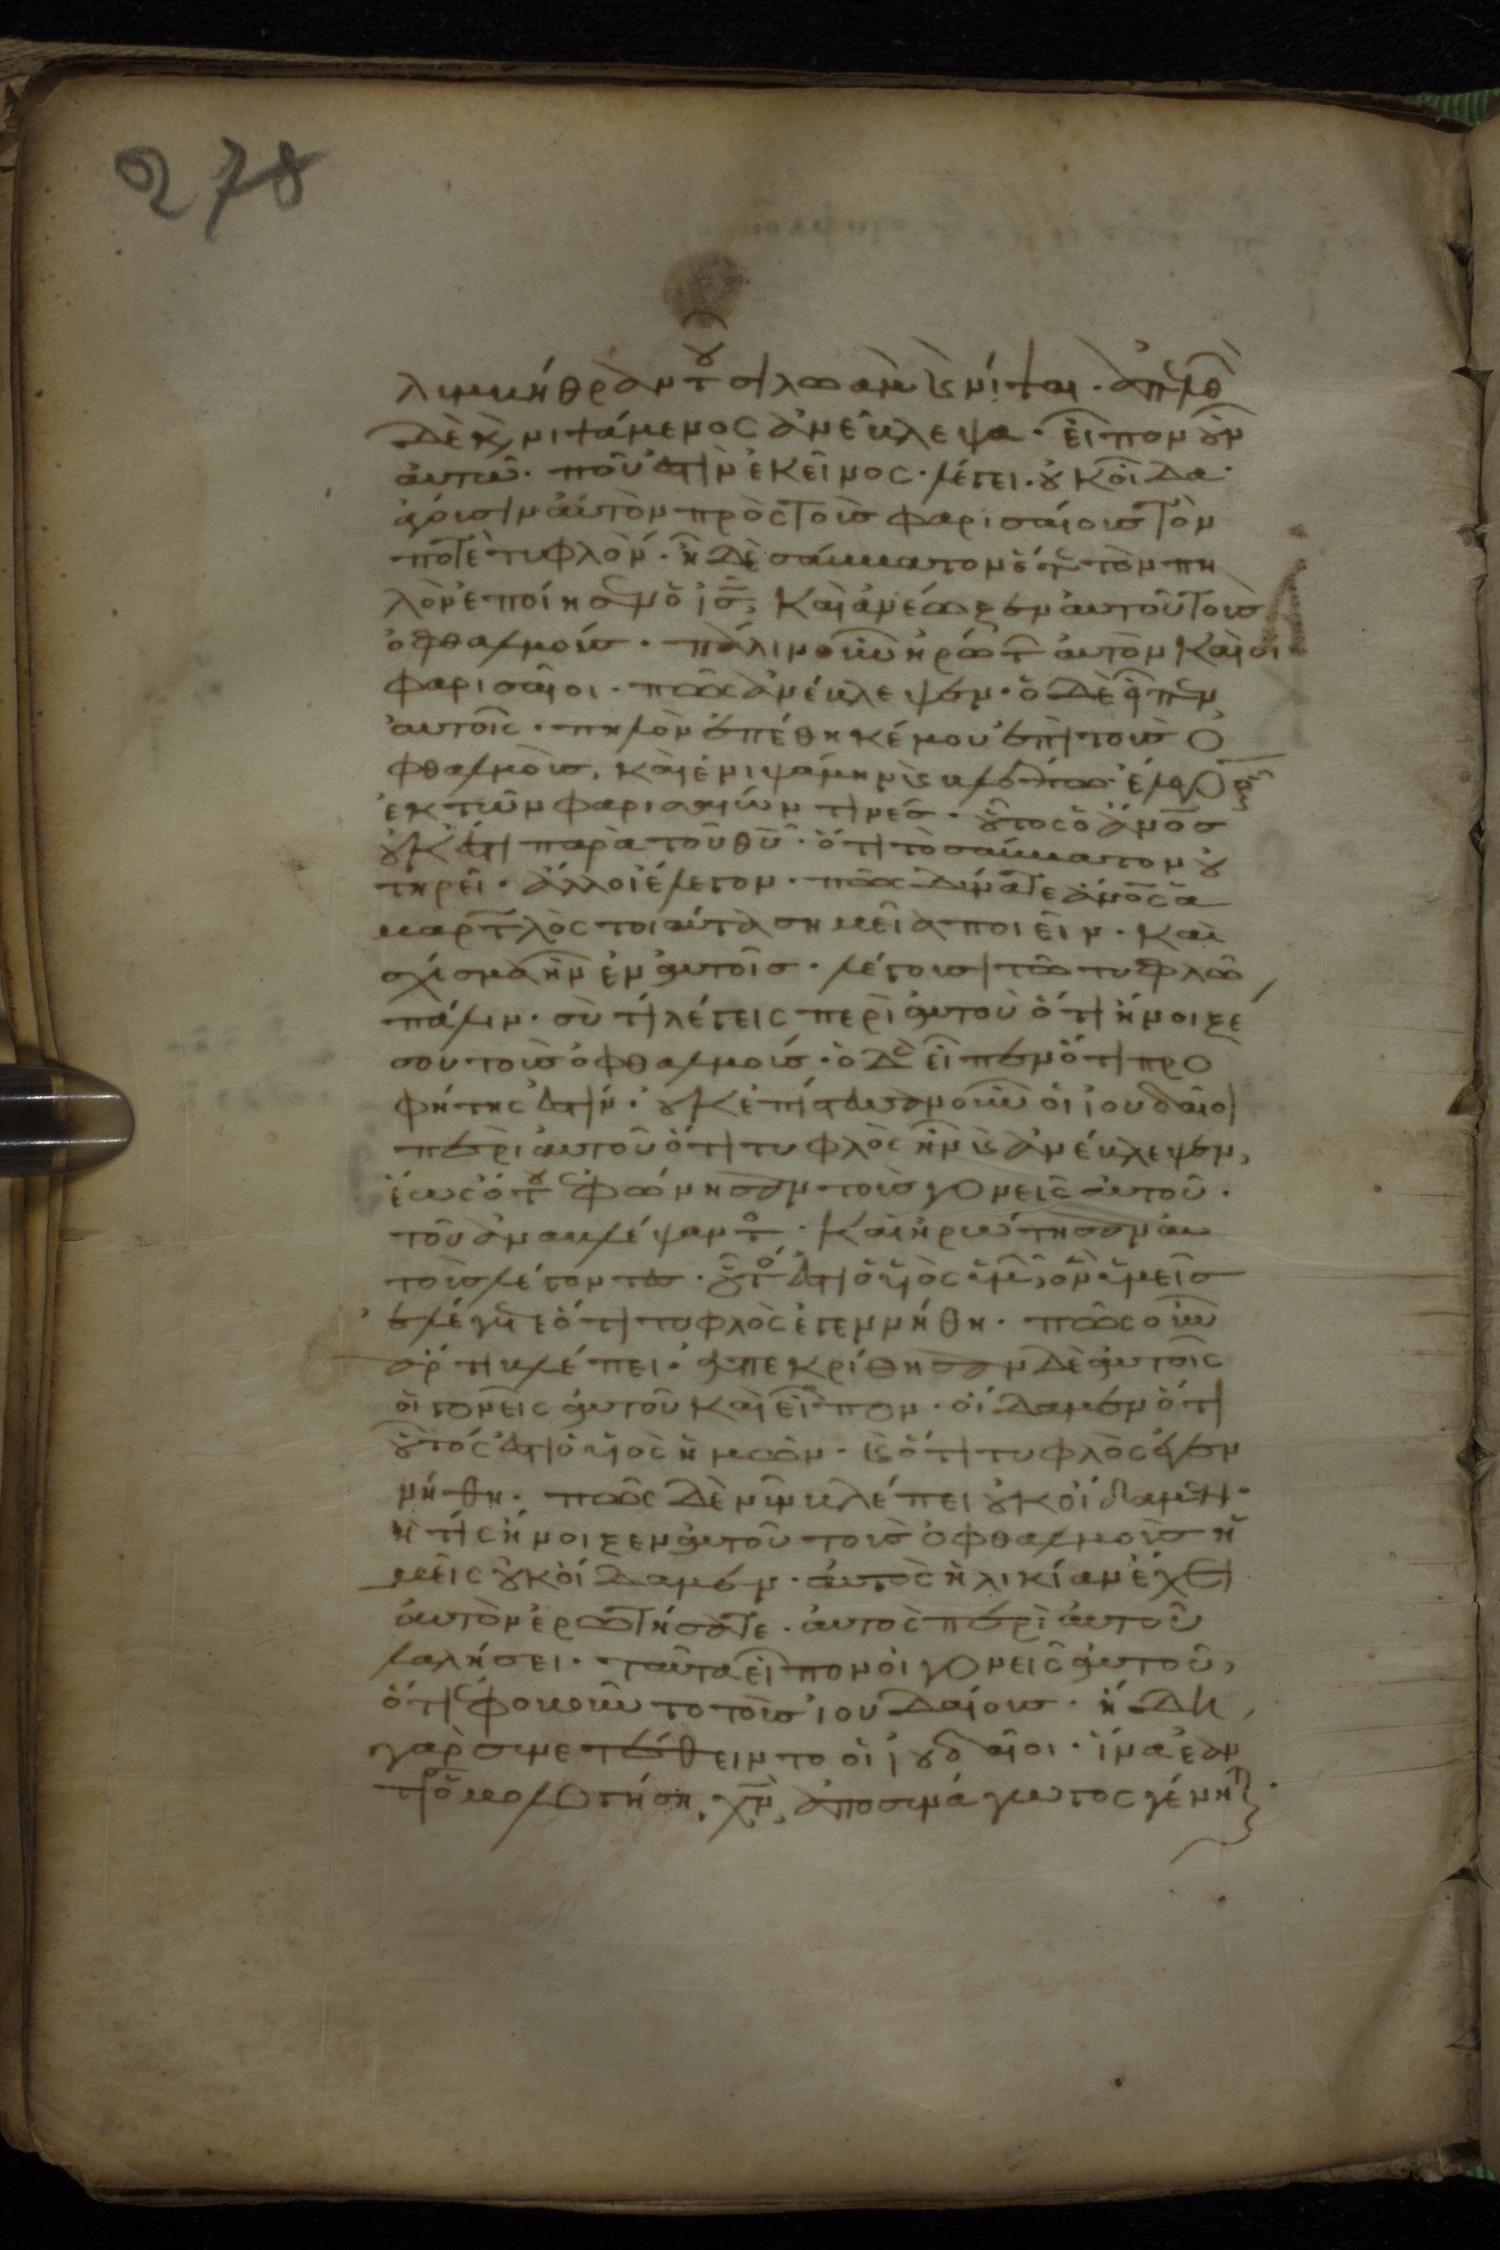 278
λυμβήθραν τοῦ σιλωὰμ καὶ νίψαι· ἀπελθὼν
δὲ καὶ νιψάμενος ἀνέβλεψα· εἶπον οὖν
αὐτῶ· ποῦ ἐστὶν ἐκεῖνος· λέγει· οὐκ οἶδα·
ἄγουσιν αὐτὸν πρὸς τοὺς φαρισαίους τὸν
ποτὲ τυφλόν· ἦν δὲ σάββατον ὅτε τὸν πη
λὸν ἐποίησεν ὁ ις̅, καὶ ἀνέωξεν αὐτοῦ τοὺς
ὀφθαλμούς· πάλιν οὖν ἠρώτων αὐτὸν καὶ οἱ
φαρισαῖοι· πῶς ἀνέβλεψεν· ὁ δὲ εἶπεν
αὐτοῖς· πηλὸν ἐπέθηκέ μου ἐπὶ τοὺς ὀ
φθαλμοὺς, καὶ ἐνιψάμην καὶ βλέπω· ἔλεγον οὖν
ἐκ τῶν φαρισαίων τινές· οὗτος ὁ ἄνος̅
οὐκ ἔστι παρὰ τοῦ θυ̅· ὅτι τὸ σάββατον οὐ
τηρεῖ· ἄλλοι ἔλεγον· πῶς δύναται ἄνος̅ ἁ
μαρτωλὸς τοιαῦτα σημεῖα ποιεῖν· καὶ
σχίσμα ἦν ἐν αὐτοῖς· λέγουσι τῶ τυφλῶ
πάλιν· σὺ τί λέγεις περὶ αὐτοῦ ὅτι ἤνοιξέ
σου τοὺς ὀφθαλμούς· ὁ δὲ εἶπεν ὅτι προ
φήτης ἐστίν· οὐκ ἐπίστευσαν οὖν οἱ ἰουδαῖοι
περὶ αὐτοῦ ὅτι τυφλὸς ἦν καὶ ἀνέβλεψεν,
ἕως ὅτου ἐφώνησαν τοὺς γονεῖς αὐτοῦ·
τοῦ ἀναβλέψαντος· καὶ ἠρώτησαν αὐ
τοὺς λέγοντες· οὗτός ἐστι ὁ υἱὸς ὑμῶν, ὃν ὑμεῖς
λέγετε ὅτι τυφλὸς ἐγεννήθη· πῶς οὖν
ἄρτι βλέπει· ἀπεκρίθησαν δὲ αὐτοῖς
οἱ γονεῖς αὐτοῦ καὶ εἶπον· οἴδαμεν ὅτι
οὗτός ἐστι ὁ υἱὸς ἡμῶν· καὶ ὅτι τυφλὸς ἐγεν
νήθη· πῶς δὲ νῦν βλέπει οὐκ οἴδαμεν·
ἢ τίς ἤνοιξεν αὐτοῦ τοὺς ὀφθαλμοὺς ἡ
μεῖς οὐκ οἴδαμεν· αὐτὸς ἡλικίαν ἔχει
αὐτὸν ἐρωτήσατε· αὐτὸς περὶ αὐτοῦ
λαλήσει· ταῦτα εἶπον οἱ γονεῖς αὐτοῦ,
ὅτι ἐφοβοῦντο τοὺς ἰουδαίους· ἤδη
γὰρ συνετέθειντο οἱ ἰουδαῖοι· ἵνα ἐάν
τις ὁμολογήση χν̅, ἀποσυνάγωγος γένηται·